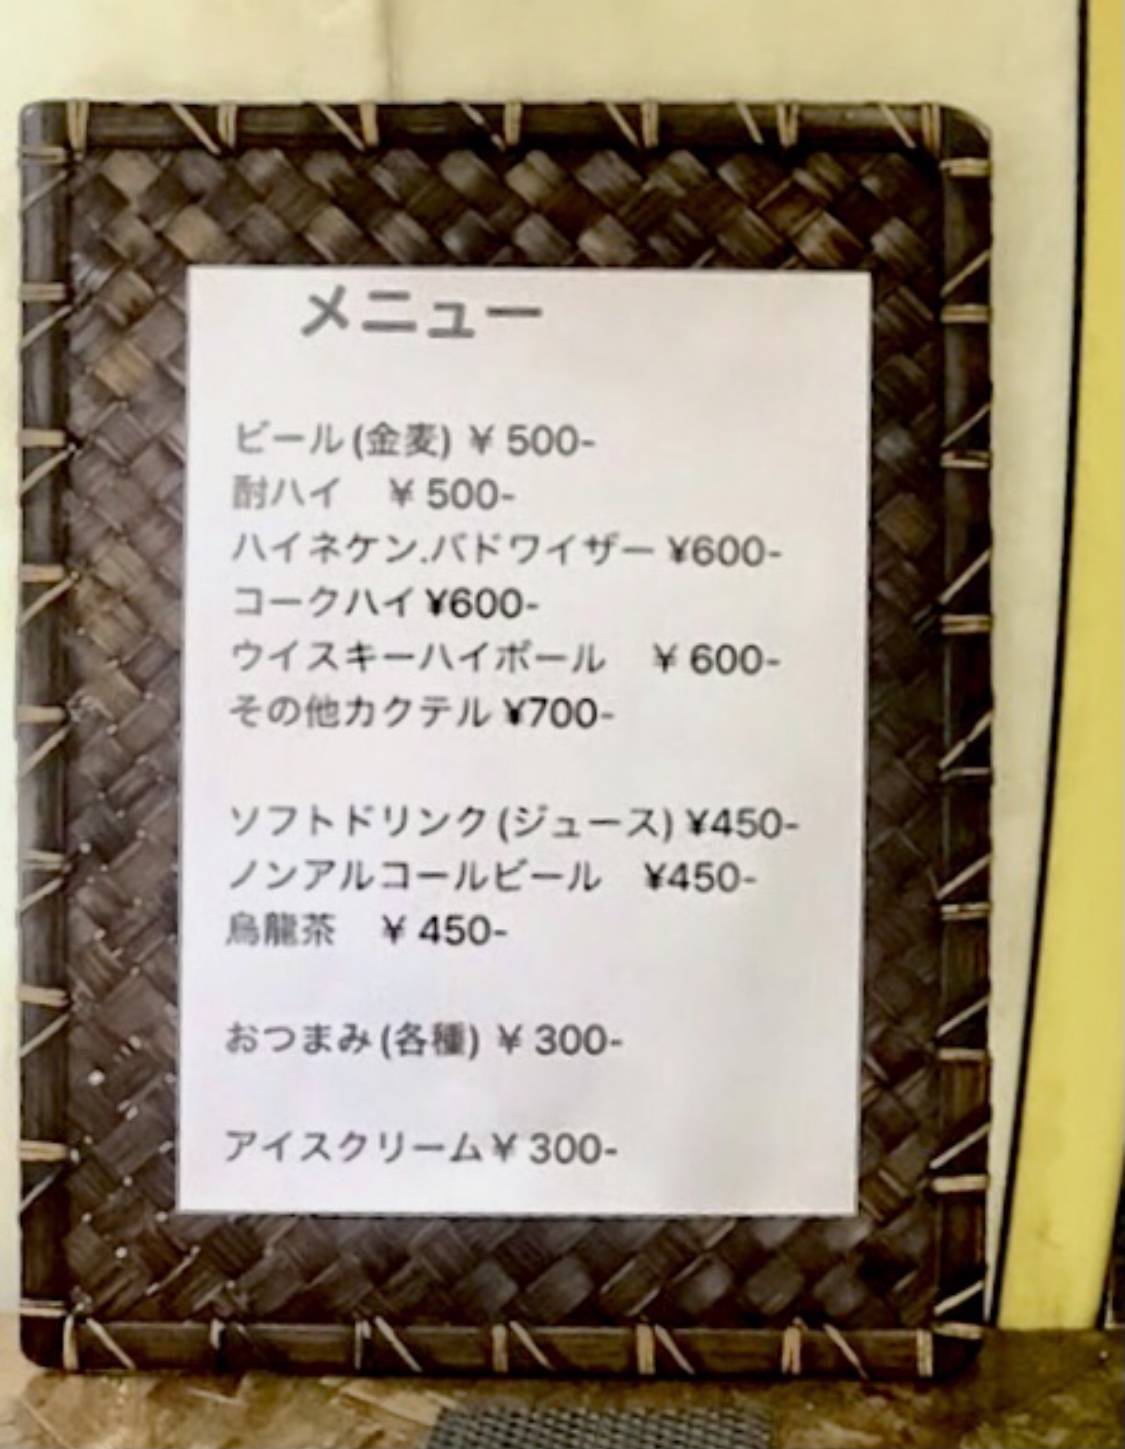 メニュー
ビール(金麦) ¥ 500-
酎ハイ　¥ 500-
ハイネケン.バドワイザー ¥600-
コークハイ ¥600-
ウイスキーハイボール　¥ 600-
その他カクテル ¥700-
ソフトドリンク(ジュース) ¥450-
ノンアルコールビール　¥450-
烏龍茶　¥ 450-
おつまみ(各種) ¥ 300-
アイスクリーム¥ 300-